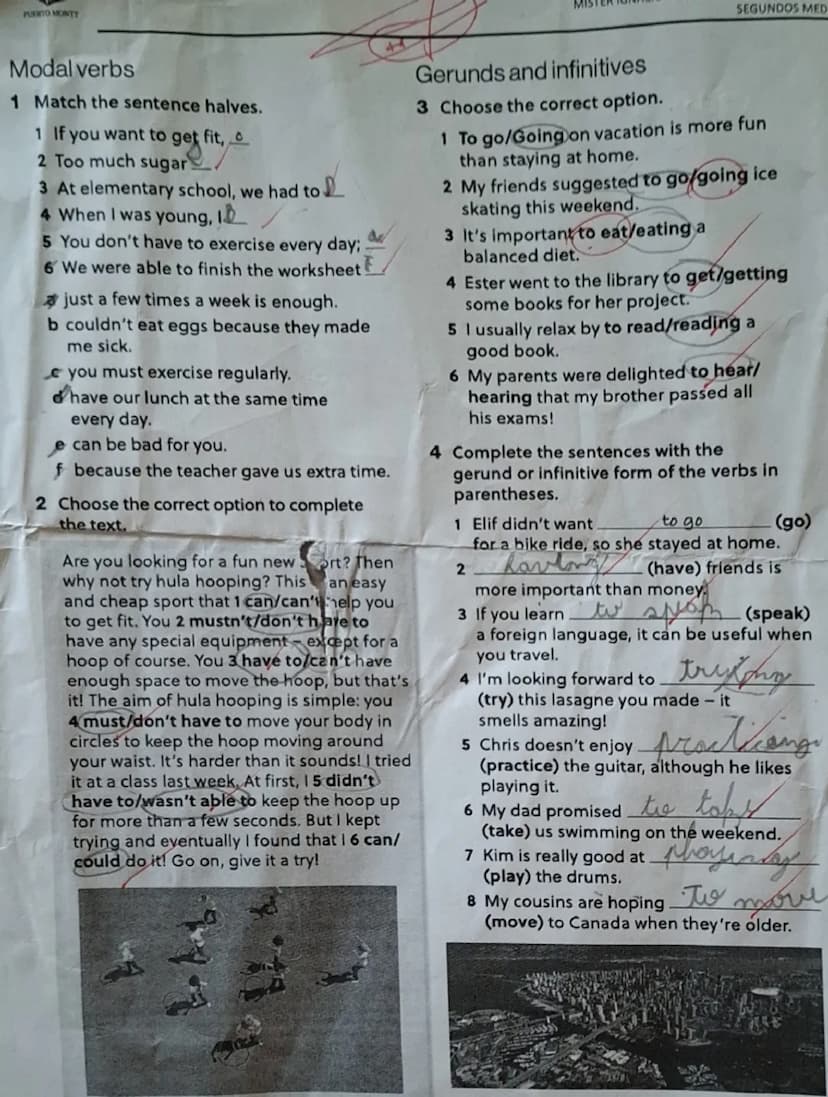 PUERTO MONTT
SEGUNDOS MED
Modal verbs
1 Match the sentence halves.
1 If you want to get fit, c
2 Too much sugar
3 At elementary school, we had to
4 When I was young, I b
5 You don't have to exercise every day;
6 We were able to finish the worksheet F
a just a few times a week is enough.
b couldn't eat eggs because they made
me sick.
c you must exercise regularly.
d have our lunch at the same time
every day.
e can be bad for you.
f because the teacher gave us extra time.
2 Choose the correct option to complete
the text.
Are you looking for a fun new Then
why not try hula hooping? This an easy
and cheap sport that 1 can/can't help you
to get fit. You 2 mustn't/don't have to
have any special equipment – except for a
hoop of course. You 3 have to/can't have
enough space to move the hoop, but that's
it! The aim of hula hooping is simple: you
4 must/don't have to move your body in
circles to keep the hoop moving around
your waist. It's harder than it sounds! I tried
it at a class last week. At first, I 5 didn't
have to/wasn't able to keep the hoop up
for more than a few seconds. But I kept
trying and eventually I found that I 6 can/
could do it! Go on, give it a try!
Gerunds and infinitives
3 Choose the correct option.
1 To go/Going on vacation is more fun
than staying at home.
2 My friends suggested to go/going ice
skating this weekend.
3 It's important to eat/eating a
balanced diet.
4 Ester went to the library to get/getting
some books for her project.
5 I usually relax by to read/reading a
good book.
6 My parents were delighted to hear/
hearing that my brother passed all
his exams!
4 Complete the sentences with the
gerund or infinitive form of the verbs in
parentheses.
1 Elif didn't want to go (go)
for a bike ride, so she stayed at home.
2 having (have) friends is
more important than money.
3 If you learn to speak (speak)
a foreign language, it can be useful when
you travel.
4 I'm looking forward to trying
(try) this lasagne you made – it
smells amazing!
5 Chris doesn't enjoy practicing
(practice) the guitar, although he likes
playing it.
6 My dad promised to take
(take) us swimming on the weekend.
7 Kim is really good at playing
(play) the drums.
8 My cousins are hoping To move
(move) to Canada when they're older.